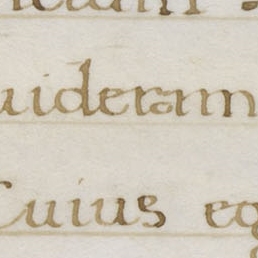 uideram
Cuius eg